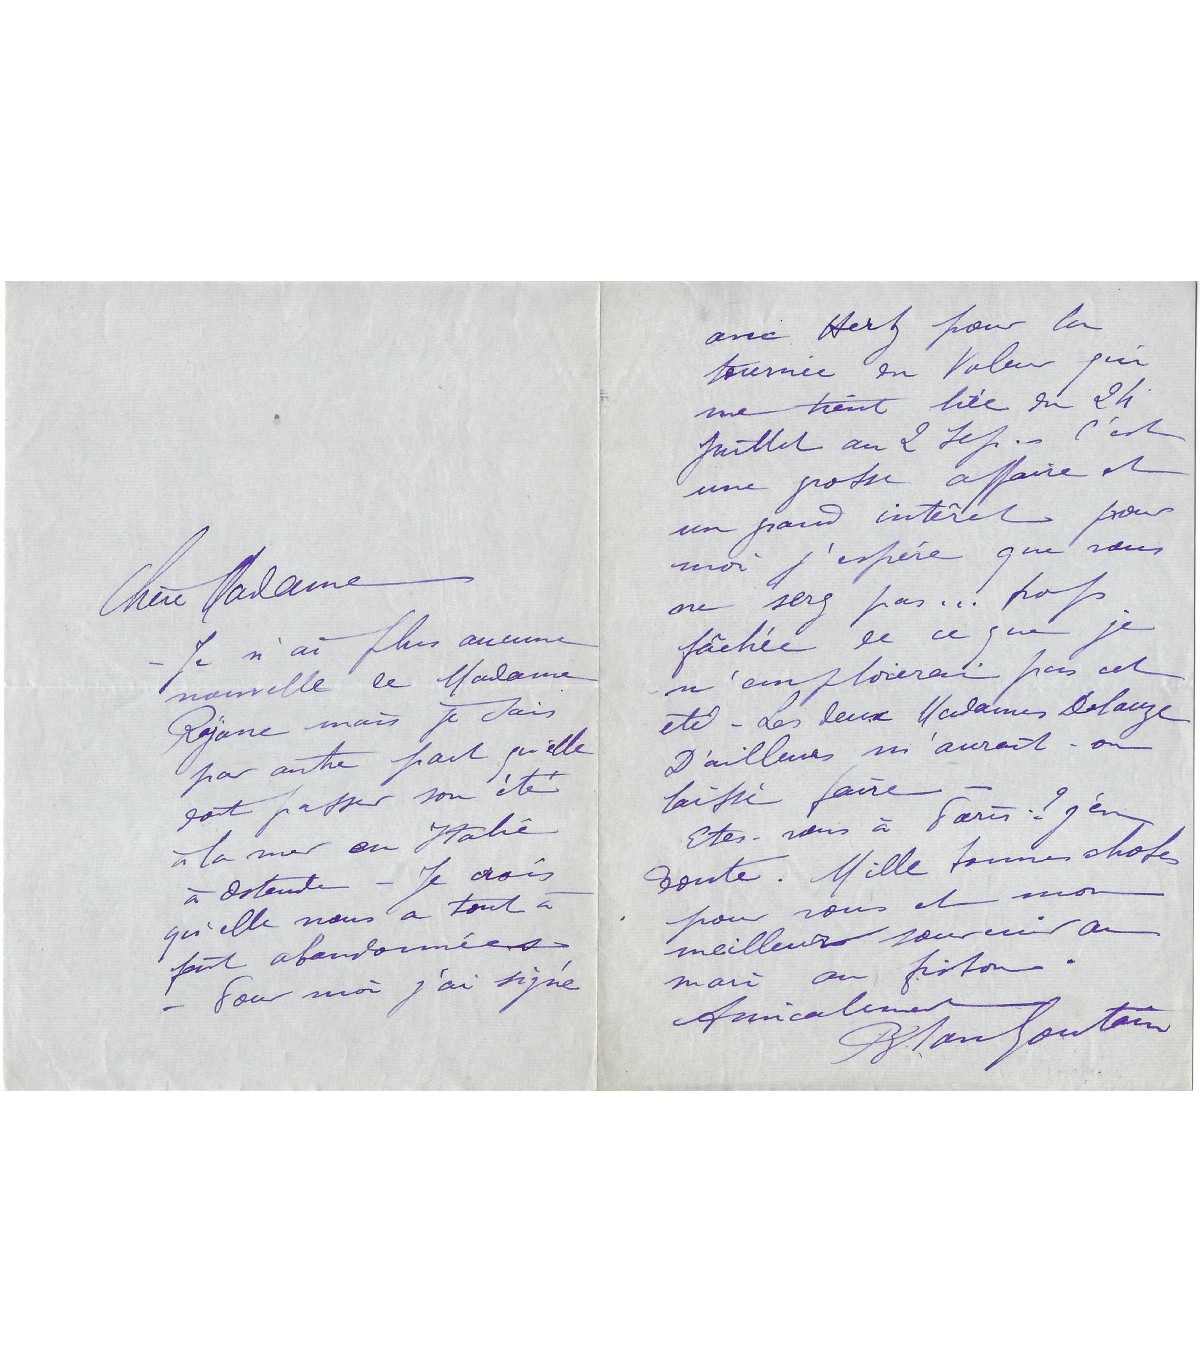 Chère Madame
– Je n'ai plus aucune
nouvelle de Madame
Réjane mais je sais
par autre part qu'elle
doit passer son été
à la mer en Italie
à Ostende – Je crois
qu'elle nous a tout à
fait abandonnées
– Pour moi j'ai signé
avec Hertz pour la
tournée du Voleur qui
me tient liée du 24
Juillet au 2 Sep. – C'est
une grosse affaire et
un grand intérêt pour
moi j'espère que vous
ne serez pas... trop
fâchée de ce que je
n'emploierai pas cet
été – Les deux Madames Delauze
D'ailleurs m'aurait-on
laissé faire –
Etes-vous à Paris ? j'en
doute. Mille bonnes choses
pour vous et mon
meilleur souvenir au
mari au fiston.
Amicalement